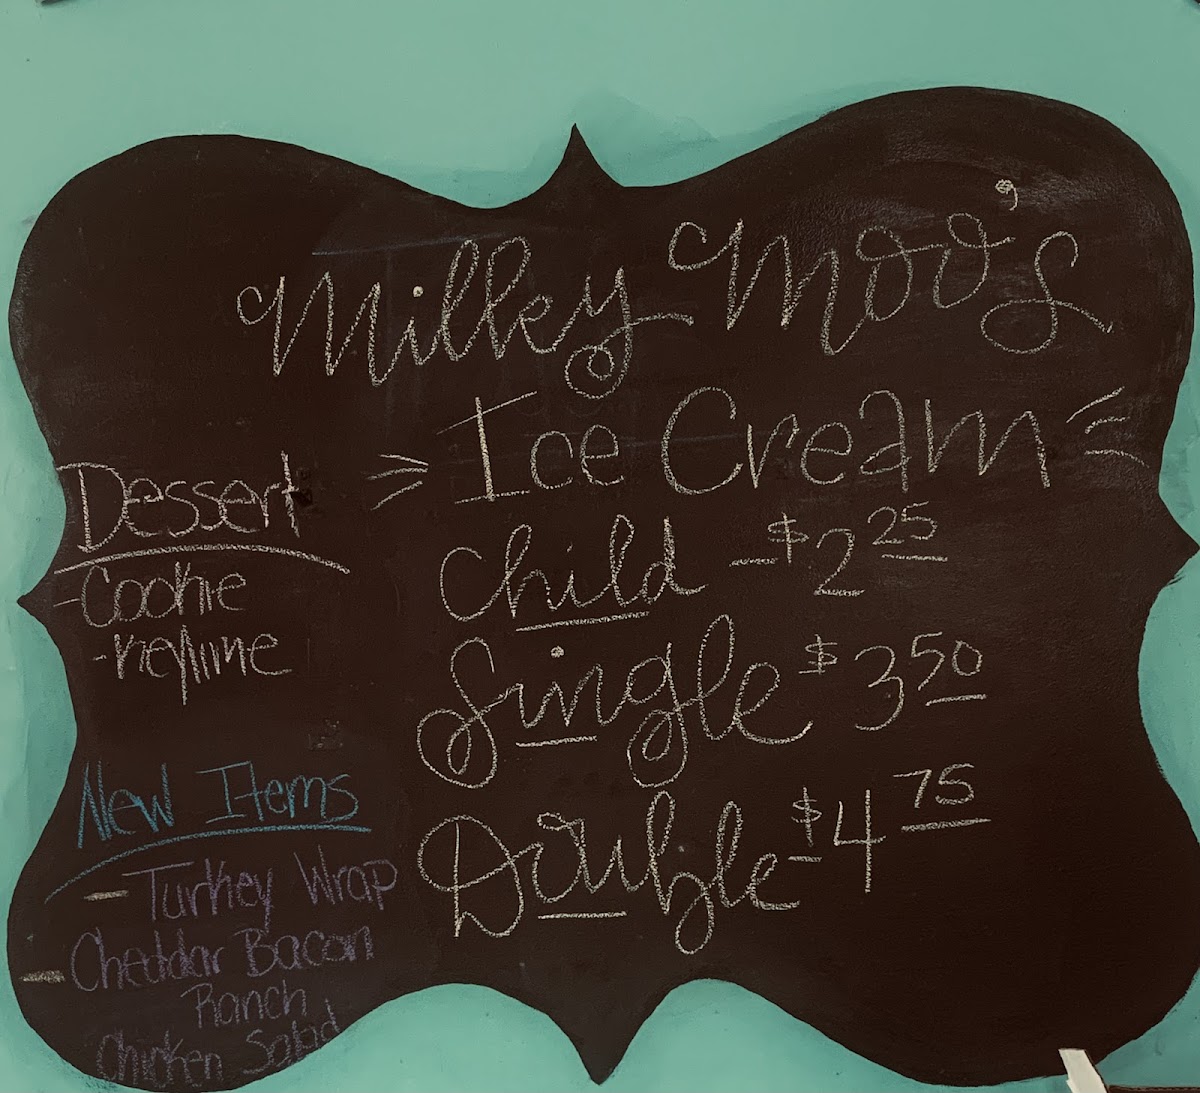 Milky Moo's
Ice Cream
Child - $2 25
Single $3 50
Double - $4 75
Dessert
- Cookie
- Keylime
New Items
- Turkey Wrap
- Cheddar Bacon
Ranch
Chicken Salad